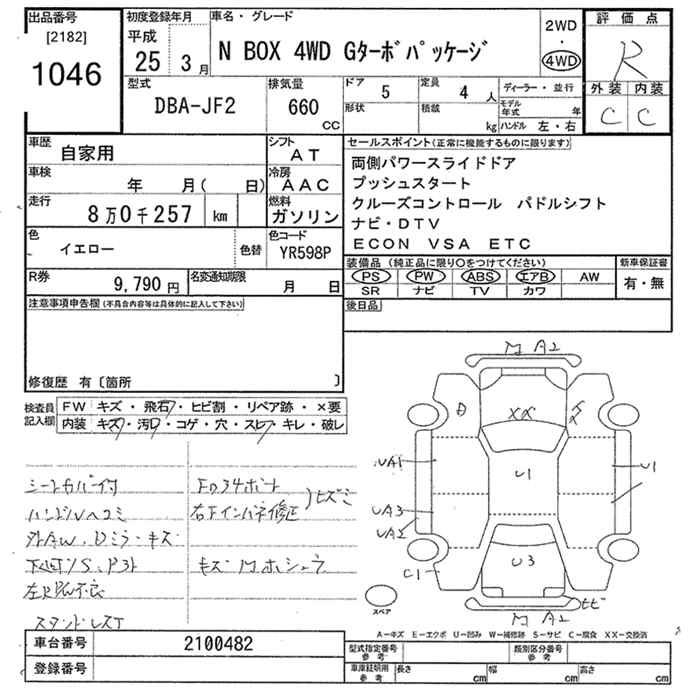 出品番号
[2182]
1046
初度登録年月
平成
25 3月
車名・グレード
N BOX 4WD Gターボパッケージ
2WD
・
4WD
評価点
R
外装 内装
C C
型式
DBA-JF2
排気量
660
CC
ドア 5
定員 4 人
形状
積載 kg
ディーラー・並行
モデル年式 年
ハンドル 左・右
車歴
自家用
シフト
AT
車検
年 月( 日)
冷房
AAC
走行
8万0千257 km
燃料
ガソリン
色
イエロー
色替
色コード
YR598P
R券
9,790円
名変通知期限
月 日
セールスポイント(正常に機能するものに限ります)
両側パワースライドドア
プッシュスタート
クルーズコントロール パドルシフト
ナビ・DTV
ECON VSA ETC
装備品(純正品に限り○をつけてください)
PS PW ABS エアB AW
SR ナビ TV カワ
新車保証書
有・無
後日品
注意事項申告欄(不具合内容等は具体的に記入して下さい)
修復歴 有〔箇所 〕
検査員記入欄
FW キズ・飛石・ヒビ割・リペア跡・×要
内装 キズ・汚・コゲ・穴・スレ・キレ・破レ
シートカバー付
ハンドルヘコミ
外AW、Dミラーキズ
スタンドレスT
右FインパネS修正
M A2
D
XX
UA1
U1
U1
UA3
UA2
C1
U3
ヒビ
M A2
スペア
A-キズ E-エクボ U-凹み W-補修跡 S-サビ C-腐食 XX-交換済
車台番号
2100482
登録番号
型式指定番号
参考
類別区分番号
参考
車庫証明用
参考
長さ cm
幅 cm
高さ cm